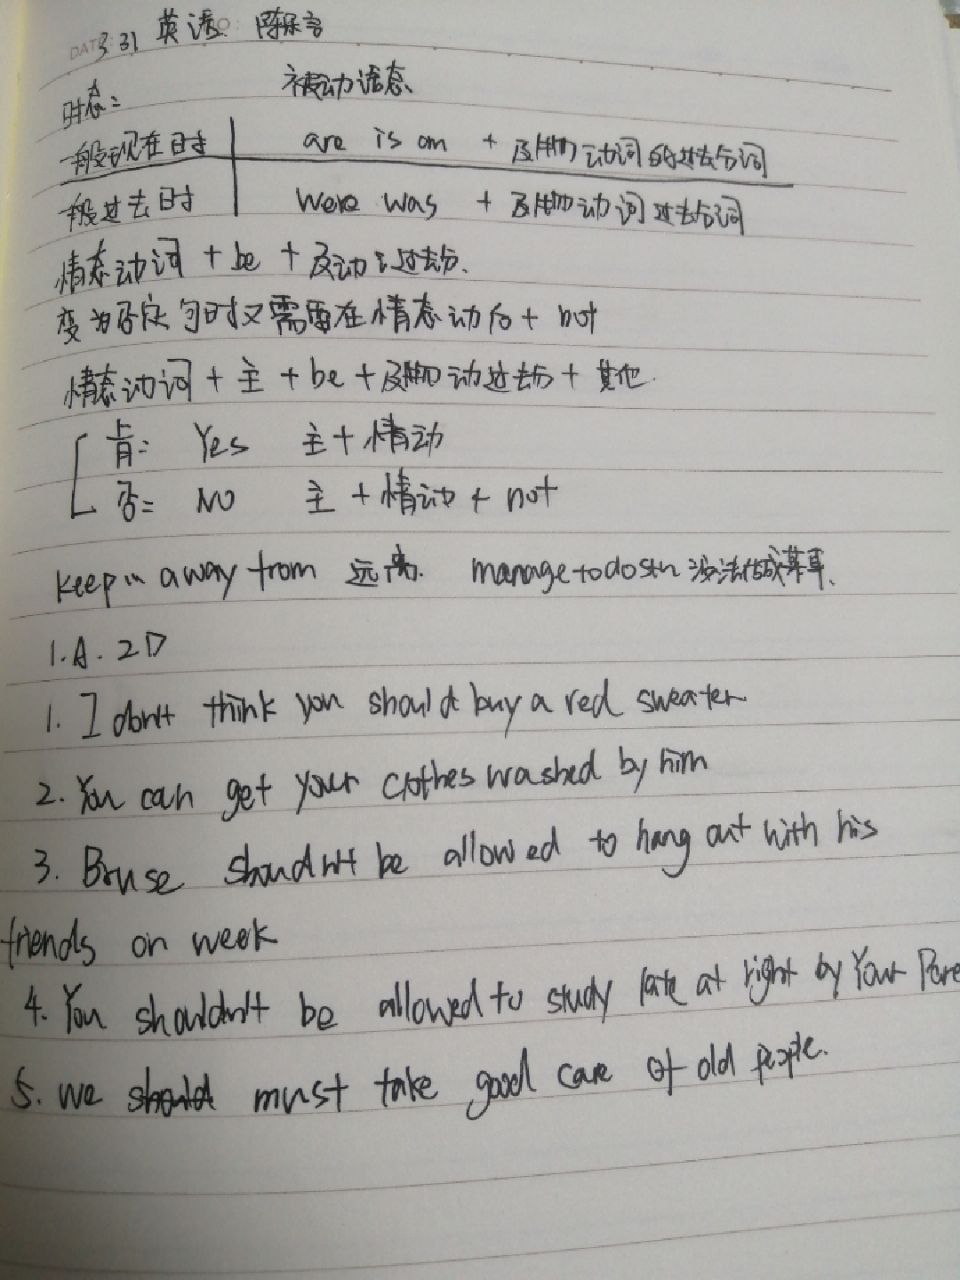 DATE 3.31 英语 陈乐言
时态: 被动语态
一般现在时 are is am + 及物动词的过去分词
一般过去时 were was + 及物动词过去分词
情态动词 + be + 及动词过去分.
变为否定句时又需要在情态动后 + not
情态动词 + 主 + be + 及物动过去分 + 其他.
肯: Yes 主 + 情动
否: NO 主 + 情动 + not
keep away from 远离. manage to do sth 设法做成某事.
1.A. 2D
1. I don't think you should buy a red sweater
2. You can get your clothes washed by him
3. Bruse shouldn't be allowed to hang out with his
friends on week
4. You shouldn't be allowed to study late at right by Your Pare
5. we should must take good care of old people.